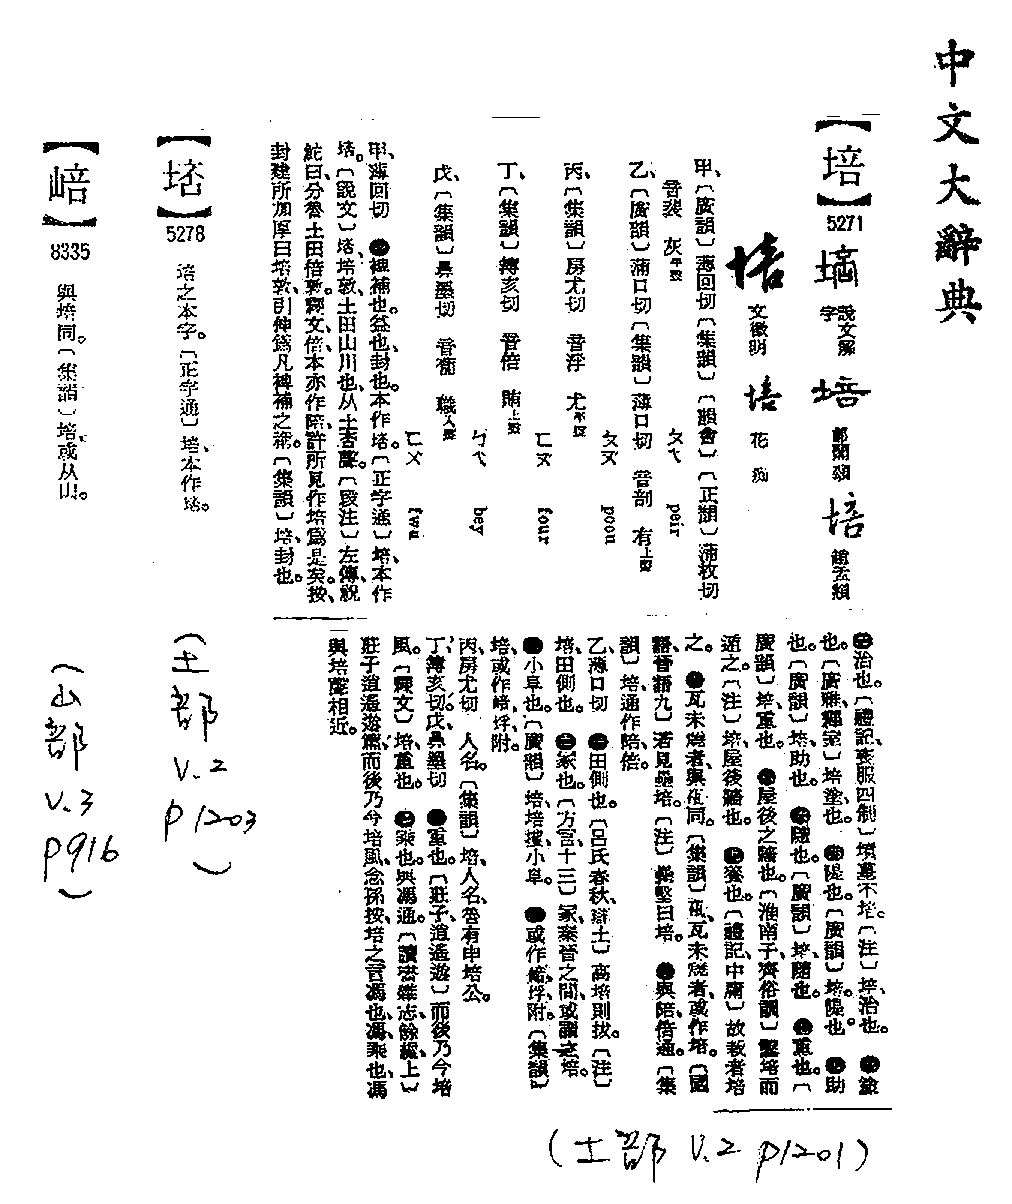 中文大辭典
【培】
5271
說文篆字
鄭蘭頴
趙孟頫
文徵明
花
甲、〔廣韻〕薄回切〔集韻〕〔韻會〕〔正韻〕蒲枚切
音裴 灰平聲
ㄆㄟ peir
乙、〔廣韻〕蒲口切〔集韻〕薄口切 音剖 有上聲
ㄆㄡ poou
丙、〔集韻〕房尤切 音浮 尤平聲
ㄈㄡ four
丁、〔集韻〕簿亥切 音倍 賄上聲
ㄅㄟ bey
戊、〔集韻〕鼻墨切 音匐 職入聲
ㄈㄨ fwu
甲、薄回切 ㊀裨補也。益也、封也。本作㙇。〔正字通〕培、本作
㙇。〔說文〕㙇、培敦、土田山川也、从土咅聲。〔段注〕左傳、祝
鮀曰、分魯土田倍敦、釋文、倍本亦作陪、許所見作培爲是矣、按、
封建所加厚曰培敦、引伸爲凡裨補之稱。〔集韻〕培、封也。
㊁治也。〔禮記、喪服四制〕墳墓不培。〔注〕培、治也。 ㊂塗
也。〔廣雅、釋室〕培、塗也。 ㊃隄也。〔廣韻〕培、隄也。 ㊄助
也。〔廣韻〕培、助也。 ㊅隨也。〔廣韻〕培、隨也。 ㊆重也。〔
廣韻〕培、重也。 ㊇屋後之牆也。〔淮南子、齊俗訓〕鑿培而
遁之。〔注〕培、屋後牆也。 ㊈養也。〔禮記、中庸〕故栽者培
之。 ㊉瓦未燒者、與㼦同。〔集韻〕㼦、瓦未燒者、或作培。〔國
語、晉語九〕若見壘培。〔注〕壘墼曰培。 與陪、倍通。〔集
韻〕培、通作陪、倍。
乙、薄口切 ㊀田側也。〔呂氏春秋、辯土〕高培則拔。〔注〕
培、田側也。 ㊁冢也。〔方言十三〕冢、秦晉之間、或謂之培。
㊂小阜也。〔廣韻〕培、培塿、小阜。 ㊃或作㟝、垺、附。〔集韻〕
培、或作㟝、垺、附。
丙、房尤切 人名。〔集韻〕培、人名、魯有申培公。
丁、簿亥切。戊、鼻墨切 ㊀重也。〔莊子、逍遙遊〕而後乃今培
風。〔釋文〕培、重也。 ㊁乘也。與馮通。〔讀書雜志、餘編上〕
莊子逍遙遊篇、而後乃今培風、念孫按、培之言馮也、馮、乘也、馮
與培聲相近。
(土部 V.2 P1201)
【㙇】
5278
培之本字。〔正字通〕培、本作㙇。
(土部 V.2 P1203)
【㟝】
8335
與培同。〔集韻〕培、或从山。
(山部 V.3 P916)